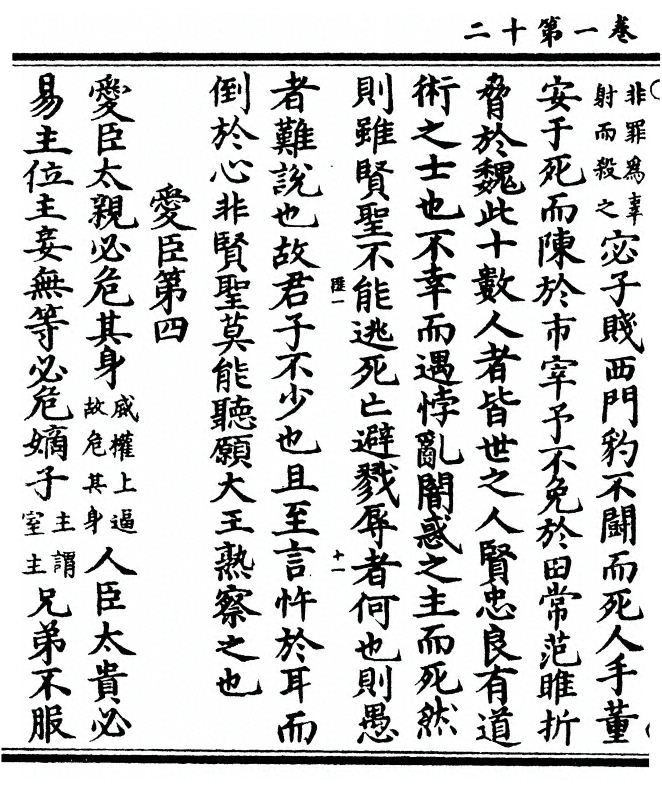 卷一第十二
非罪爲辜射而殺之宓子賤西門豹不鬭而死人手董
安于死而陳於市宰予不免於田常范雎折
脅於魏此十數人者皆世之人賢忠良有道
術之士也不幸而遇悖亂闇惑之主而死然
則雖賢聖不能逃死亡避戮辱者何也則愚
匯一
十一
者難說也故君子不少也且至言忤於耳而
倒於心非賢聖莫能聽願大王熟察之也
愛臣第四
愛臣太親必危其身威權上逼故危其身人臣太貴必
易主位主妾無等必危嫡子主謂室主兄弟不服